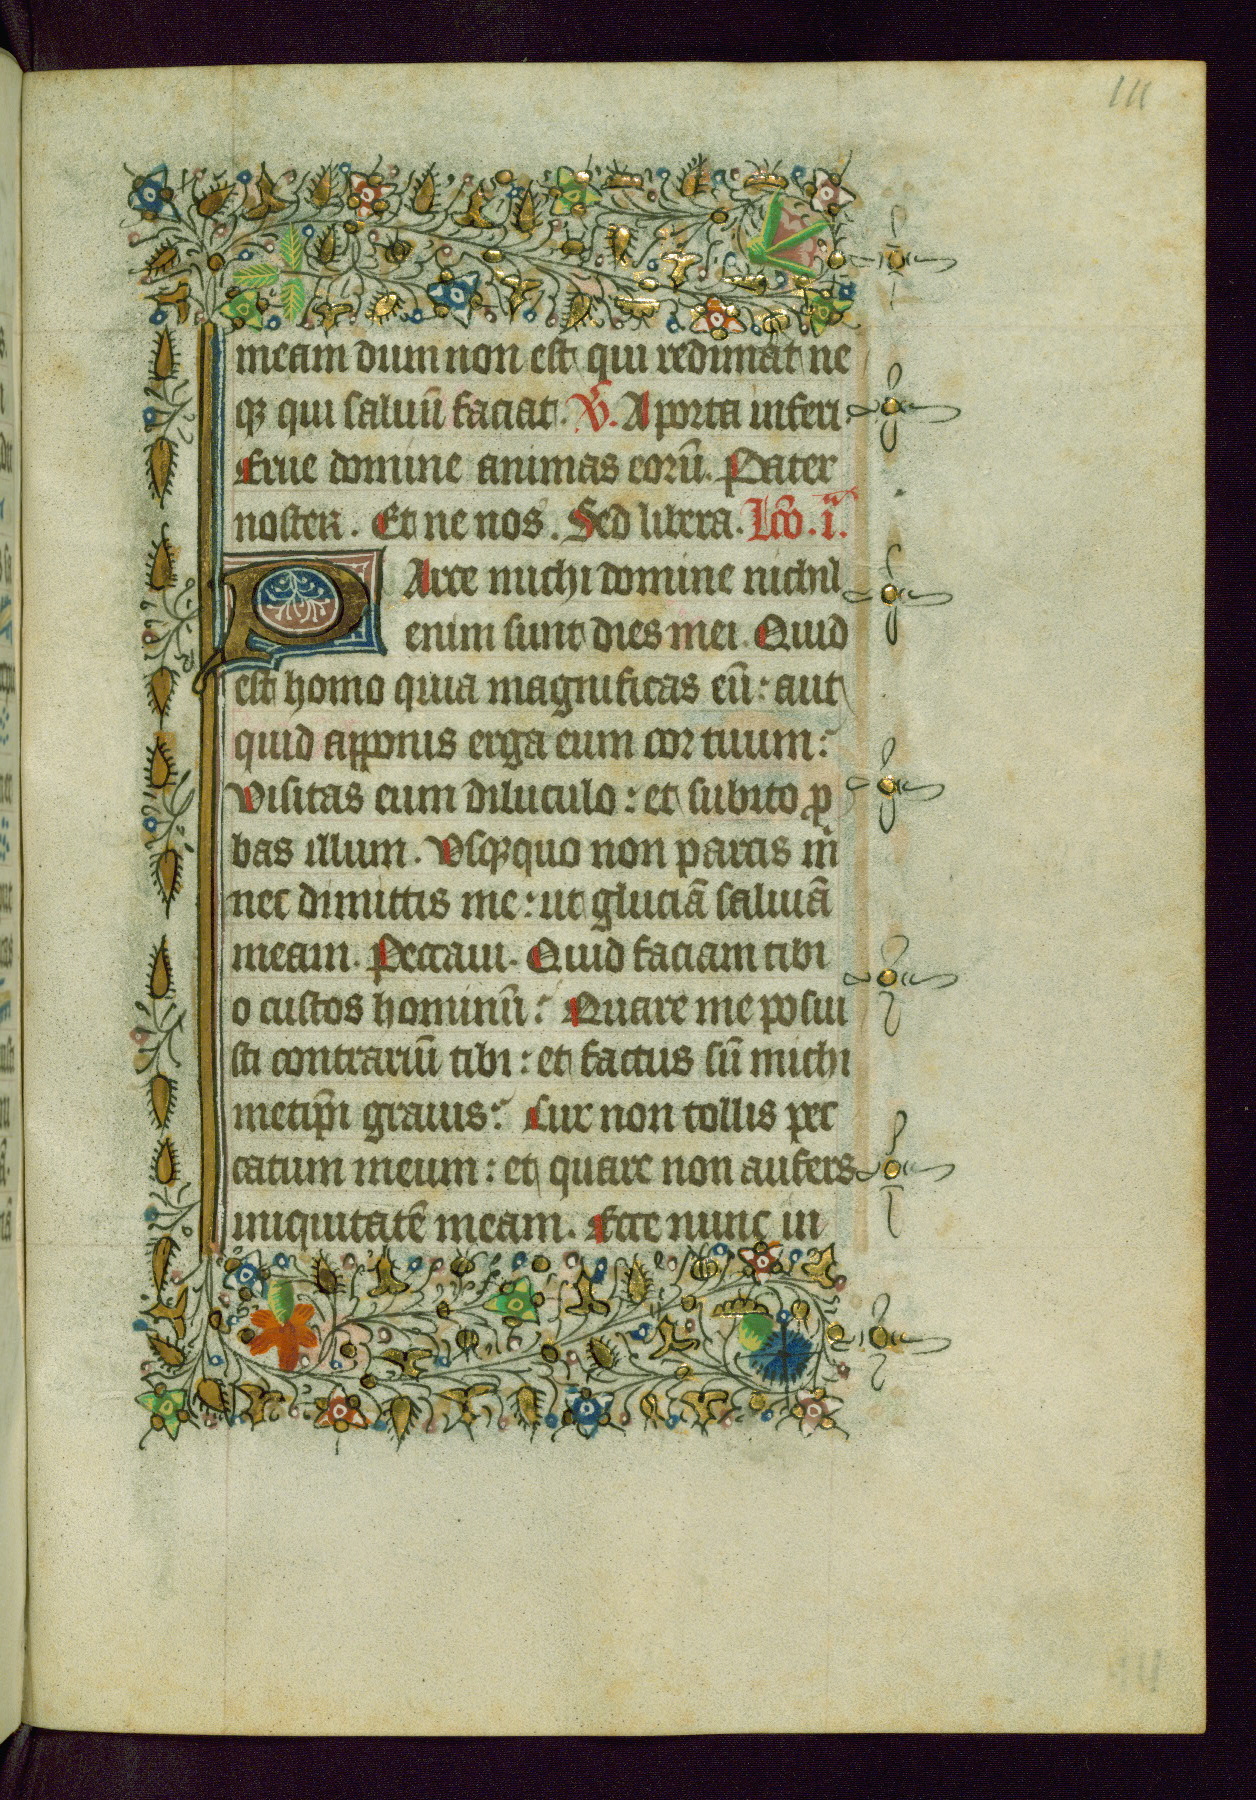 111
meam dum non est qui redimat ne
qȝ qui saluū faciat. V̄. A porta inferi.
Erue domine animas eorū. Pater
noster. Et ne nos. Sed libera. Lc̄o. i.ᵃ
PArce michi domine nichil
enim sunt dies mei. Quid
est homo quia magnificas eū: aut
quid apponis erga eum cor tuum:
Visitas eum diluculo: et subito ꝓ
bas illum. Vsqȝquo non parcis m̄
nec dimittis me: ut gluciā saliuā
meam. Peccaui. Quid faciam tibi
o custos hominū: Quare me posui
sti contrariū tibi: et factus sū michi
metip̄i grauis: Cur non tollis pec
catum meum: et quare non aufers
iniquitatē meam. Ecce nunc in